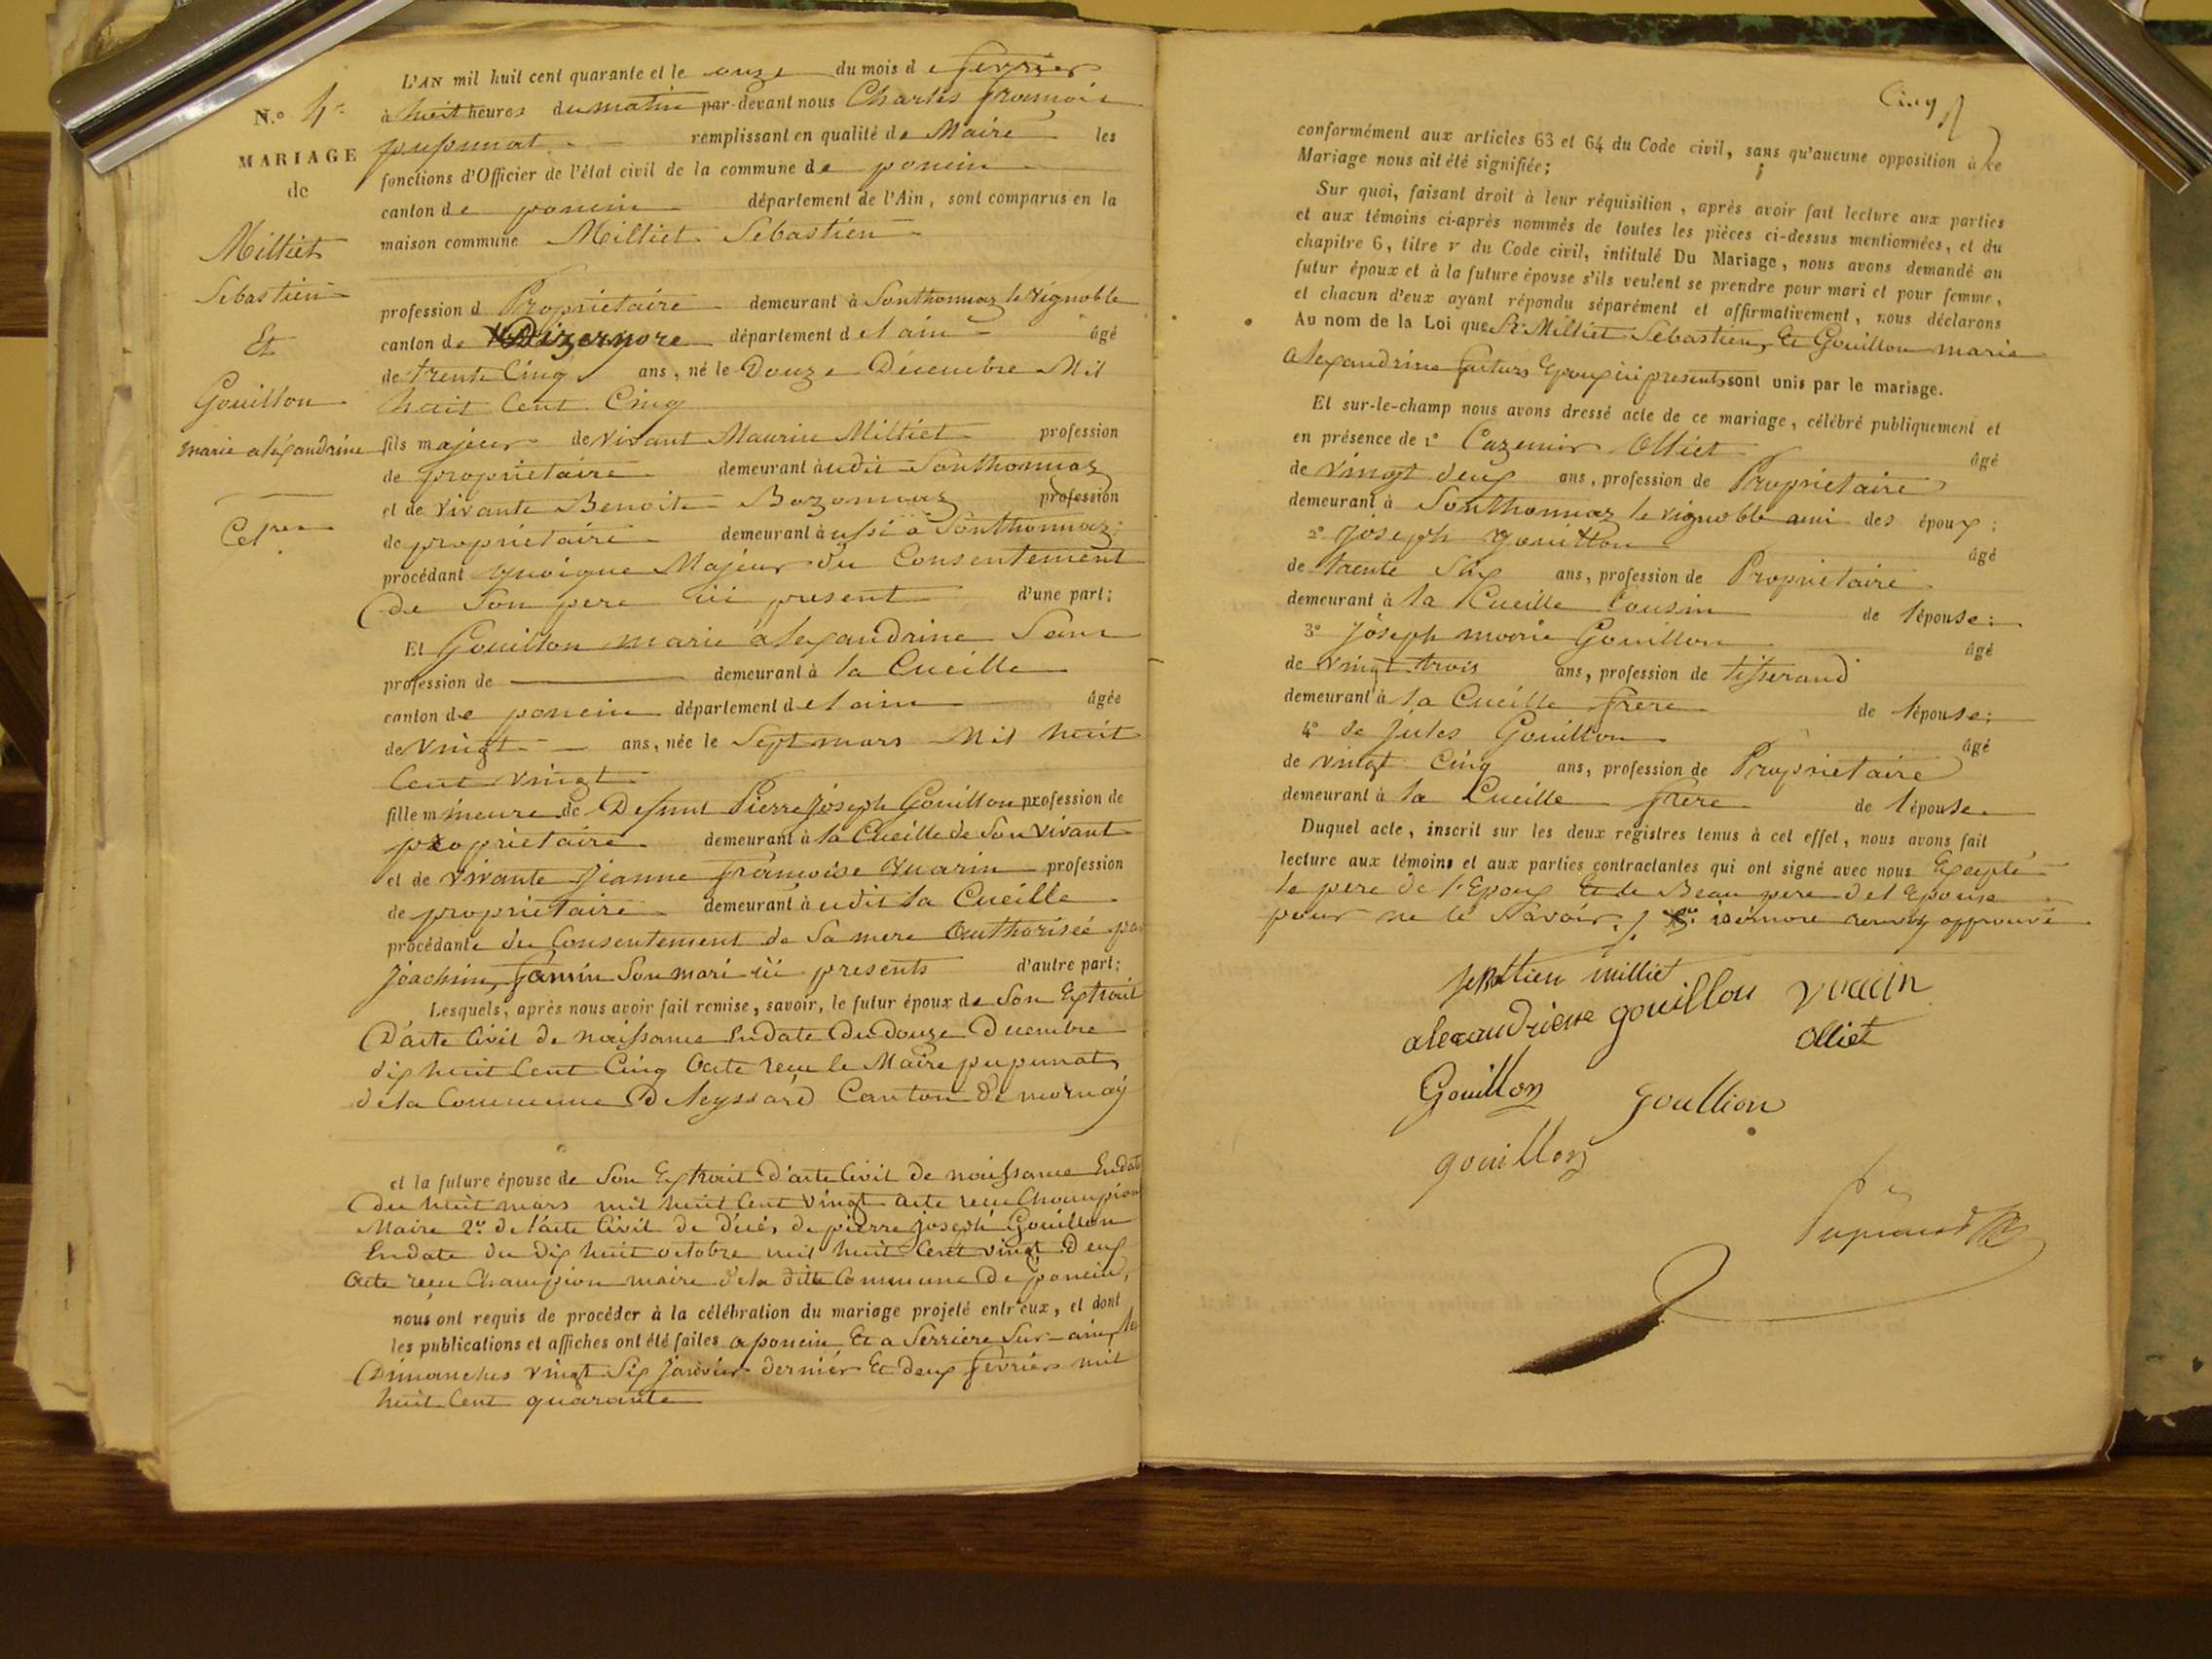 N.o 4.
MARIAGE
de
Milliet
Sebastien
Et
Gouillon
marie aléxandrine
L'AN mil huit cent quarante et le onze du mois de fevrier
à huit heures du matin par-devant nous Charles francois
pupunat remplissant en qualité de Maire les
fonctions d'Officier de l'état civil de la commune de poncin
canton de poncin département de l'Ain, sont comparus en la
maison commune Milliet Sebastien
profession d Propriétaire demeurant à Sonthonnaz le vignoble
canton de Dizernore département de l ain âgé
de trente Cinq ans, né le Douze Décembre Mil
huit Cent Cinq
fils majeur de vivant Maurice Milliet profession
de propriétaire demeurant audit Sonthonnaz
et de vivante Benoite Bozonnaz profession
de propriétaire demeurant aussi à Sonthonnaz
procédant quoique Majeur du Consentement
de Son pere ici present d'une part;
Et Gouillon marie aléxandrine Sans
profession de demeurant à la Cueille
canton de poncin département de l ain âgée
de vingt ans, née le Sept mars Mil huit
Cent vingt
fille mineure de Defunt Pierre Joseph Gouillon profession de
propriétaire demeurant à la Cueille de Son vivant
et de vivante Jeanne francoise Quarin profession
de propriétaire demeurant audit la Cueille
procédante du Consentement de Sa mere Authorisée par
Joachim Son mari ici presents d'autre part;
Lesquels, après nous avoir fait remise, savoir, le futur époux de Son Extrait
D'acte Civil de naissance En date du douze Decembre
dix huit Cent Cinq Acte recu le Maire pupunat
de la Commune De leyssard Canton de mornay
et la future épouse de Son Extrait D'acte Civil de naissance En date
du huit mars mil huit Cent vingt acte recu Champion
Maire 2.o de l'acte Civil de décés de pierre joseph Gouillon
En date du dix huit octobre mil huit Cent vingt Deux
Acte recu Champion maire de la ditte Commune De poncin,
nous ont requis de procéder à la célébration du mariage projeté entr'eux, et dont
les publications et affiches ont été faites a poncin Et a Serriere Sur ain les
Dimanches vingt Six janvier dernier Et deux fevrier mil
huit Cent quarante
Cinq
conformément aux articles 63 et 64 du Code civil, sans qu'aucune opposition à ce
Mariage nous ait été signifiée;
Sur quoi, faisant droit à leur réquisition, après avoir fait lecture aux parties
et aux témoins ci-après nommés de toutes les pièces ci-dessus mentionnées, et du
chapitre 6, titre v du Code civil, intitulé Du Mariage, nous avons demandé au
futur époux et à la future épouse s'ils veulent se prendre pour mari et pour femme,
et chacun d'eux ayant répondu séparément et affirmativement, nous déclarons
Au nom de la Loi que Sr. Milliet Sebastien, Et Gouillon marie
alexandrine futurs Epoux ici presents sont unis par le mariage.
Et sur-le-champ nous avons dressé acte de ce mariage, célébré publiquement et
en présence de 1o Cazemir Olliet âgé
de vingt deux ans, profession de Propriétaire
demeurant à Sonthonnaz le vignoble ami des époux;
2o Joseph Gouillon âgé
de trente Six ans, profession de Propriétaire
demeurant à la Cueille Cousin de l'épouse;
3o Joseph marie Gouillon âgé
de vingt trois ans, profession de tisserand
demeurant à la Cueille frere de l'épouse;
4o de Jules Gouillon âgé
de vingt Cinq ans, profession de Propriétaire
demeurant à la Cueille frere de l'épouse.
Duquel acte, inscrit sur les deux registres tenus à cet effet, nous avons fait
lecture aux témoins et aux parties contractantes qui ont signé avec nous Excepté
le pere de l'Epoux Et le Beau pere de l Epouse
pour ne le Savoir. approuvé
milliet
alexandriene gouillon
Olliet
Gouillon
goullion
gouillon